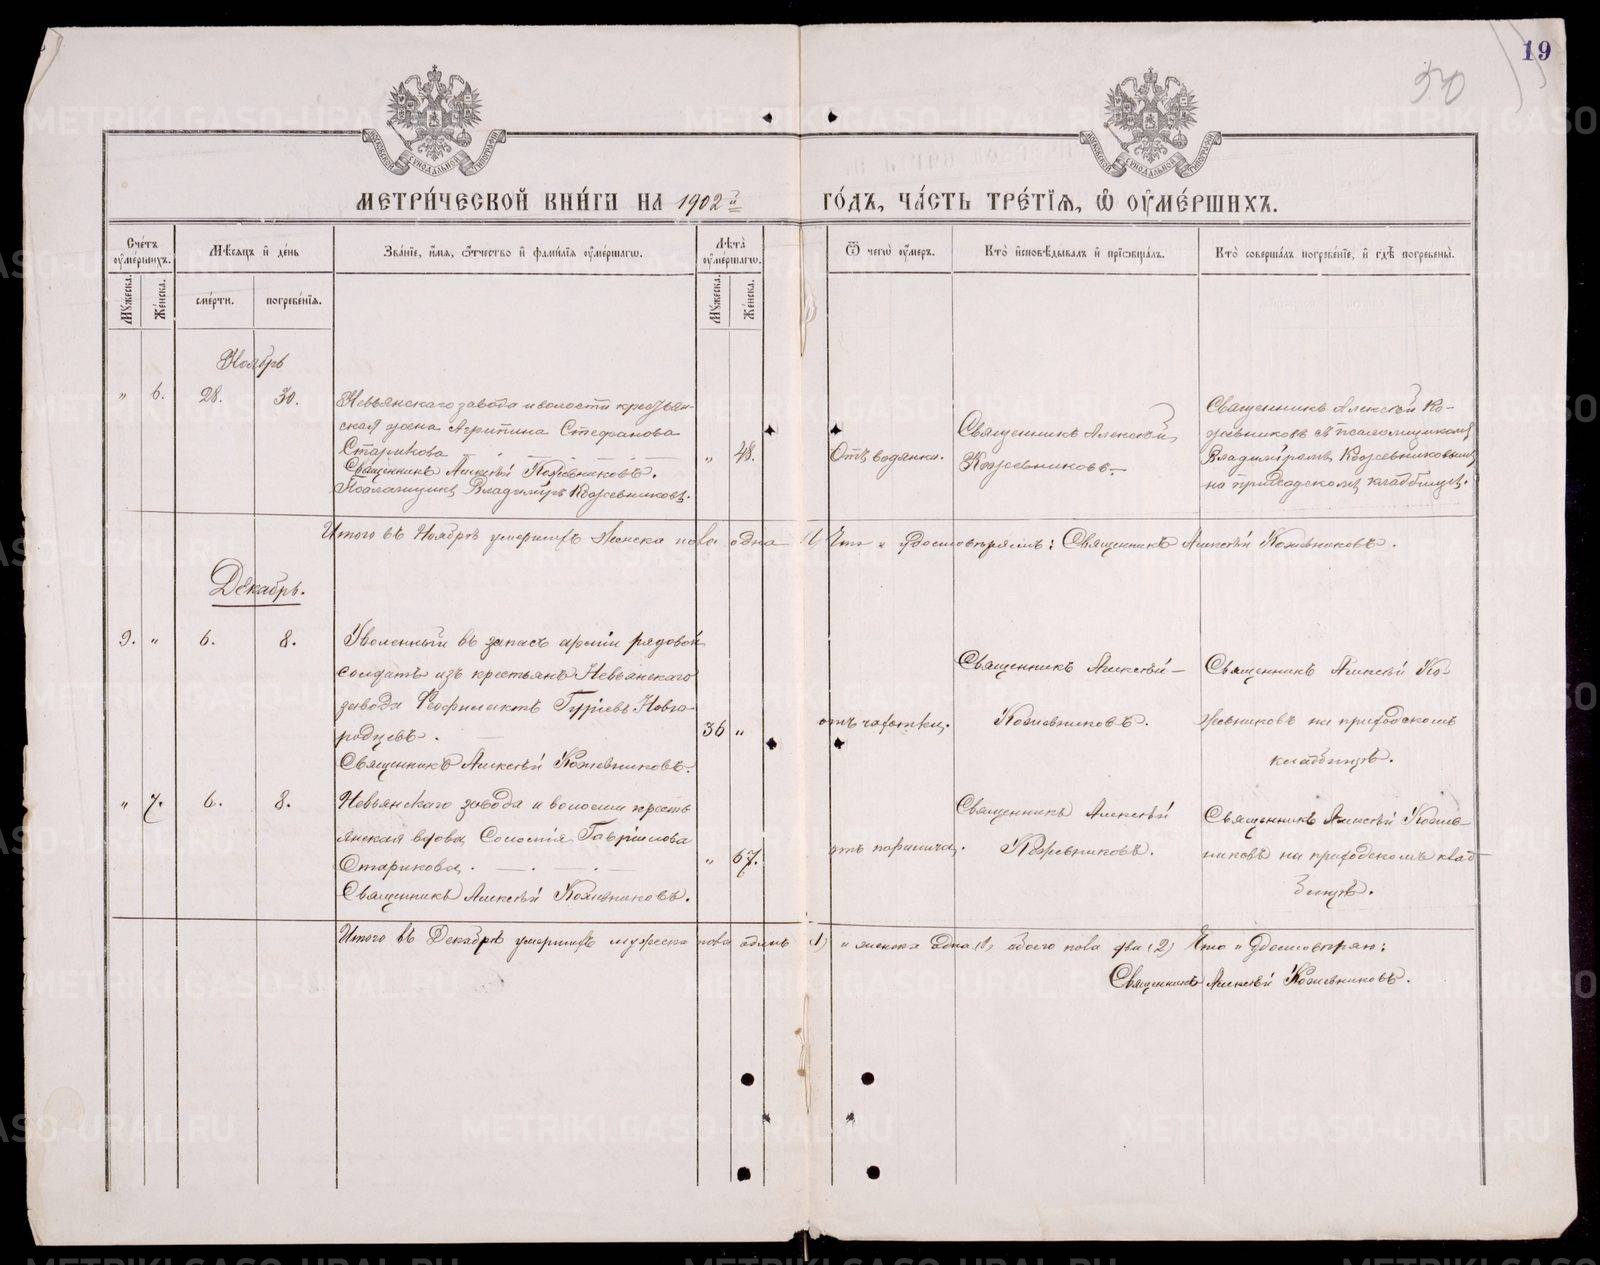 19
30
МЕТРИ́ЧЕСКОЙ КНИ́ГИ НА 1902й ГО́ДЪ, ЧА́СТЬ ТРЕ́ТІѦ, Ѽ ОУ҆МЕ́РШИХЪ.
Сче́тъ оу҆ме́ршихъ.
Мѣ́сяцъ и҆ де́нь
Зва́нїе, и҆́мѧ, ѻ҆́тчество и҆ фами́лїѧ оу҆ме́ршагѡ.
Лѣ́та оу҆ме́ршагѡ.
Ѿ чегѡ̀ оу҆́меръ.
Кто̀ и҆сповѣ́дывалъ и҆ прїѡбща́лъ.
Кто̀ соверша́лъ погребе́нїе, и҆ гдѣ̀ погребены̀.
Мꙋ́жеска.
Же́нска.
сме́рти.
погребе́нїѧ.
Мꙋ́жеска.
Же́нска.
Ноябрь
" 6. 28. 30.
Невьянскаго завода и волости крестьян-
ская жена Агрипина Стефанова
Старикова
Священникъ Алексѣй Кожевниковъ.
Псаломщикъ Владиміръ Кожевниковъ.
" 48.
Отъ водянки.
Священникъ Алексѣй
Кожевниковъ.
Священникъ Алексѣй Ко-
жевниковъ съ псаломщикомъ
Владиміромъ Кожевниковымъ
на приходскомъ кладбищѣ.
Итого въ Ноябрѣ умершихъ женска пола одна 1 Что и удостовѣряемъ: Священникъ Алексѣй Кожевниковъ.
Декабрь.
9. " 6. 8.
Уволенный въ запасъ арміи рядовой
солдатъ изъ крестьянъ Невьянскаго
завода Феофилактъ Гуріевъ Новго-
родцевъ.
Священникъ Алексѣй Кожевниковъ.
36 "
отъ чахотки.
Священникъ Алексѣй
Кожевниковъ.
Священникъ Алексѣй Ко-
жевниковъ на приходскомъ
кладбищѣ.
" 7. 6. 8.
Невьянскаго завода и волости кресть
янская вдова Соломія Гавріилова
Старикова.
Священникъ Алексѣй Кожевниковъ.
" 67.
отъ паралича.
Священникъ Алексѣй
Кожевниковъ.
Священникъ Алексѣй Кожев-
никовъ на приходскомъ клад-
бищѣ.
Итого въ Декабрѣ умершихъ мужеска пола одинъ (1) и женска одна (1) обоего пола два (2) Что и удостовѣряю:
Священникъ Алексѣй Кожевниковъ.